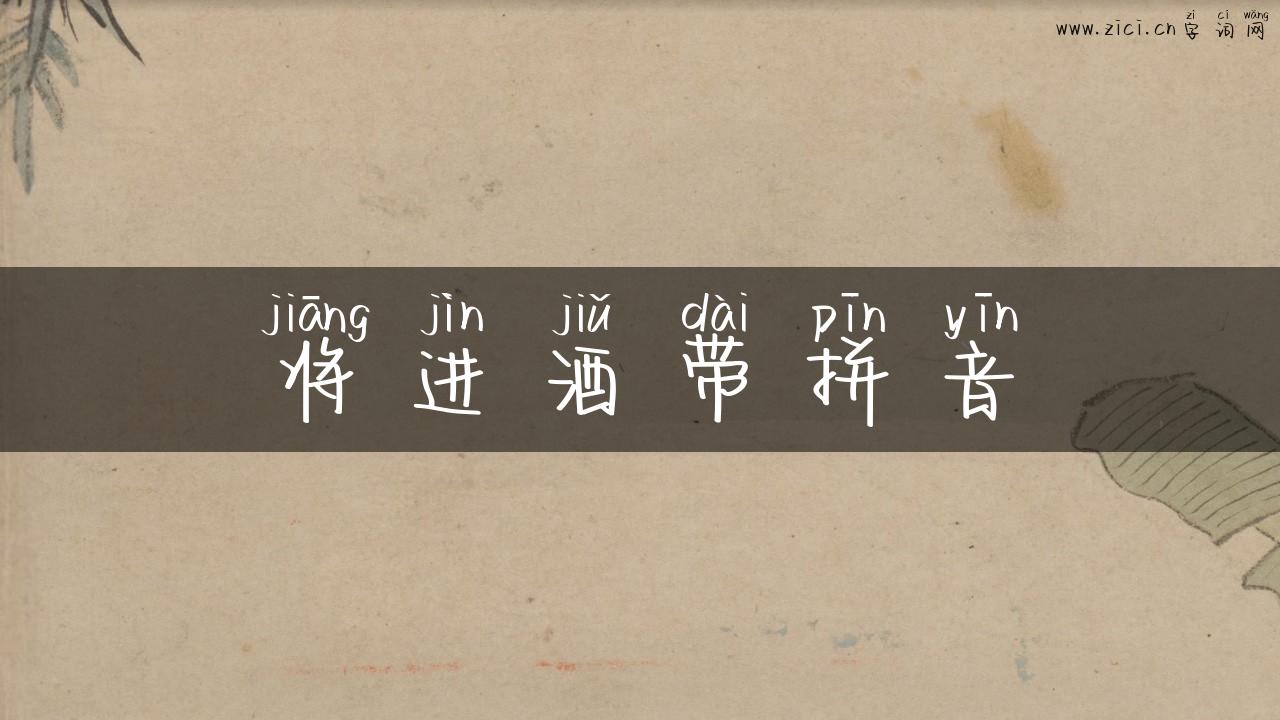 zì cí wǎng
www.zici.cn 字 词 网
jiāng jìn jiǔ dài pīn yīn
将 进 酒 带 拼 音